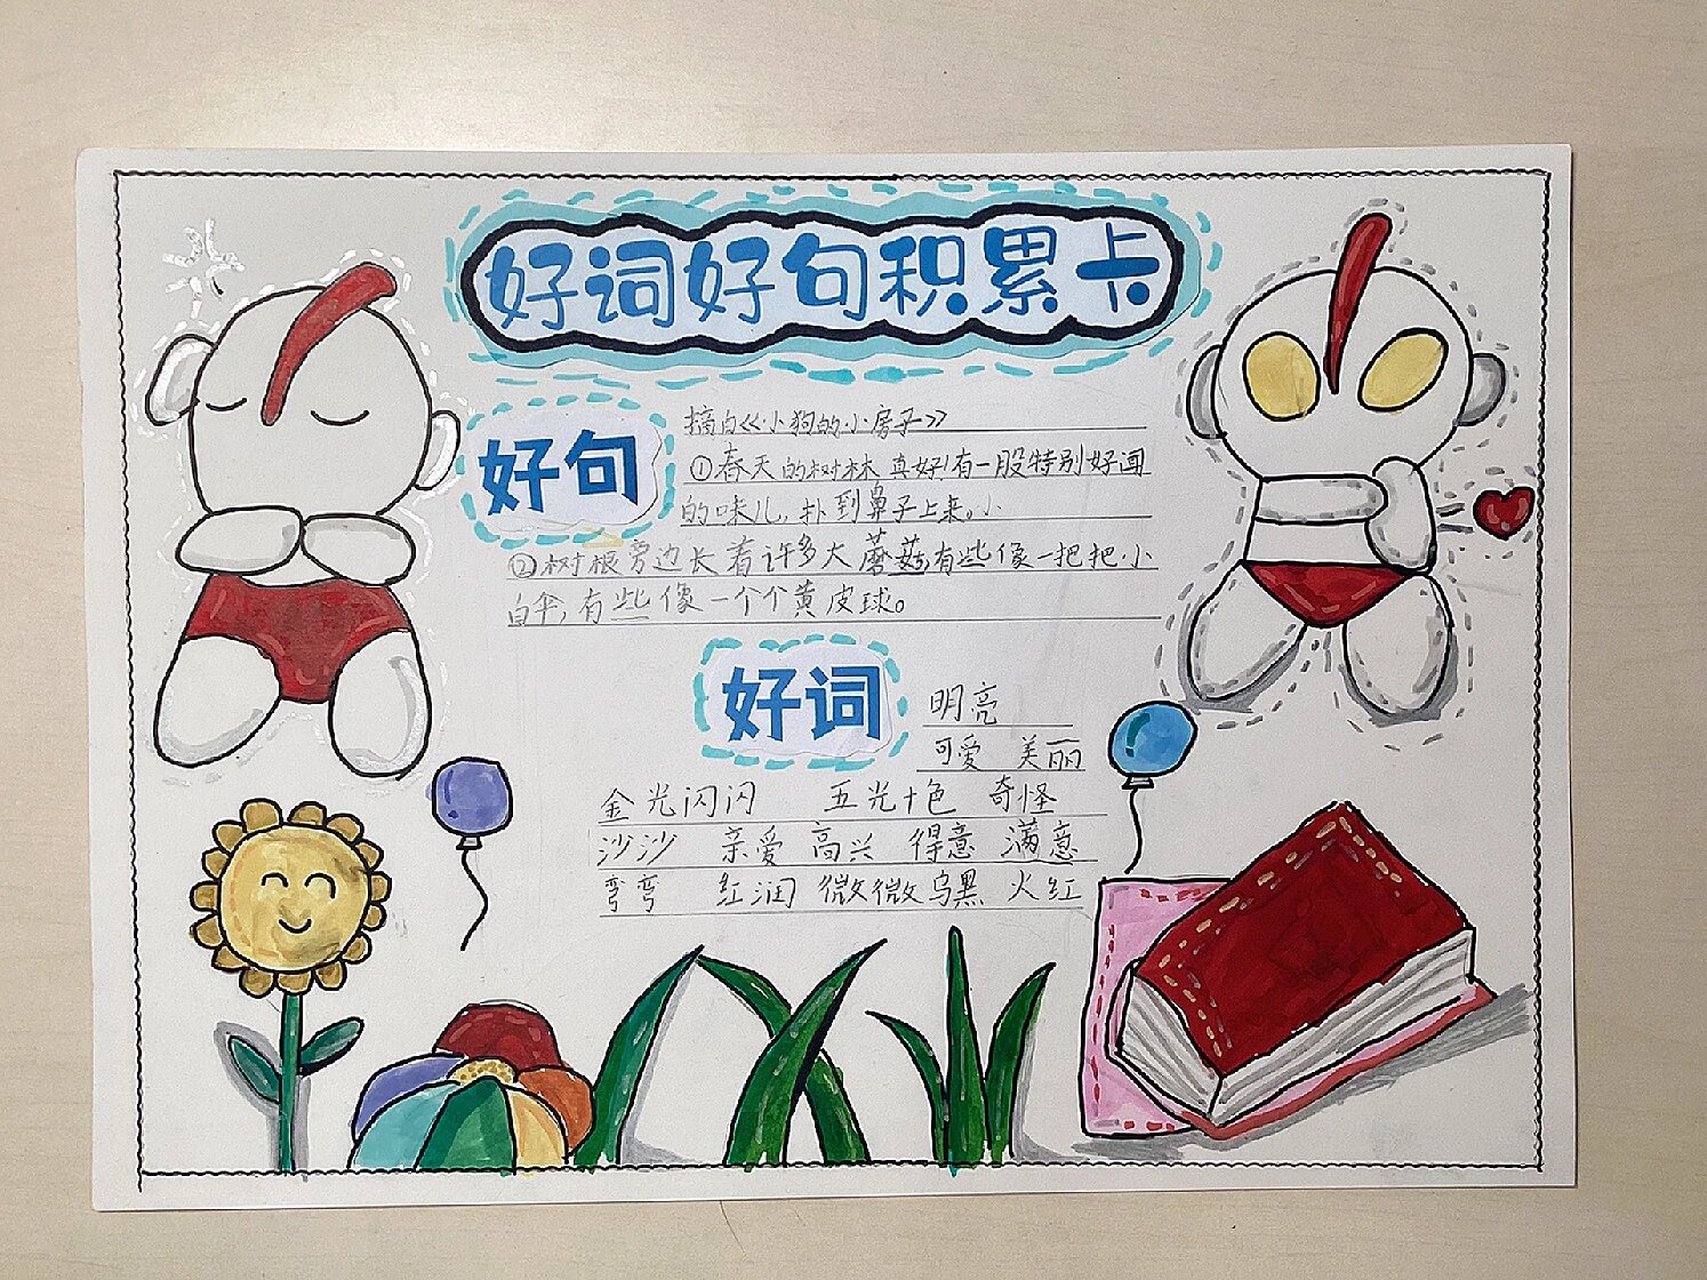 好词好句积累卡
好句
摘自《小狗的小房子》
①春天的树林真好!有一股特别好闻
的味儿,扑到鼻子上来。小
②树根旁边长着许多大蘑菇,有些像一把把小
白伞,有些像一个个黄皮球。
好词
明亮
可爱 美丽
金光闪闪 五光十色 奇怪
沙沙 亲爱 高兴 得意 满意
弯弯 红润 微微 乌黑 火红